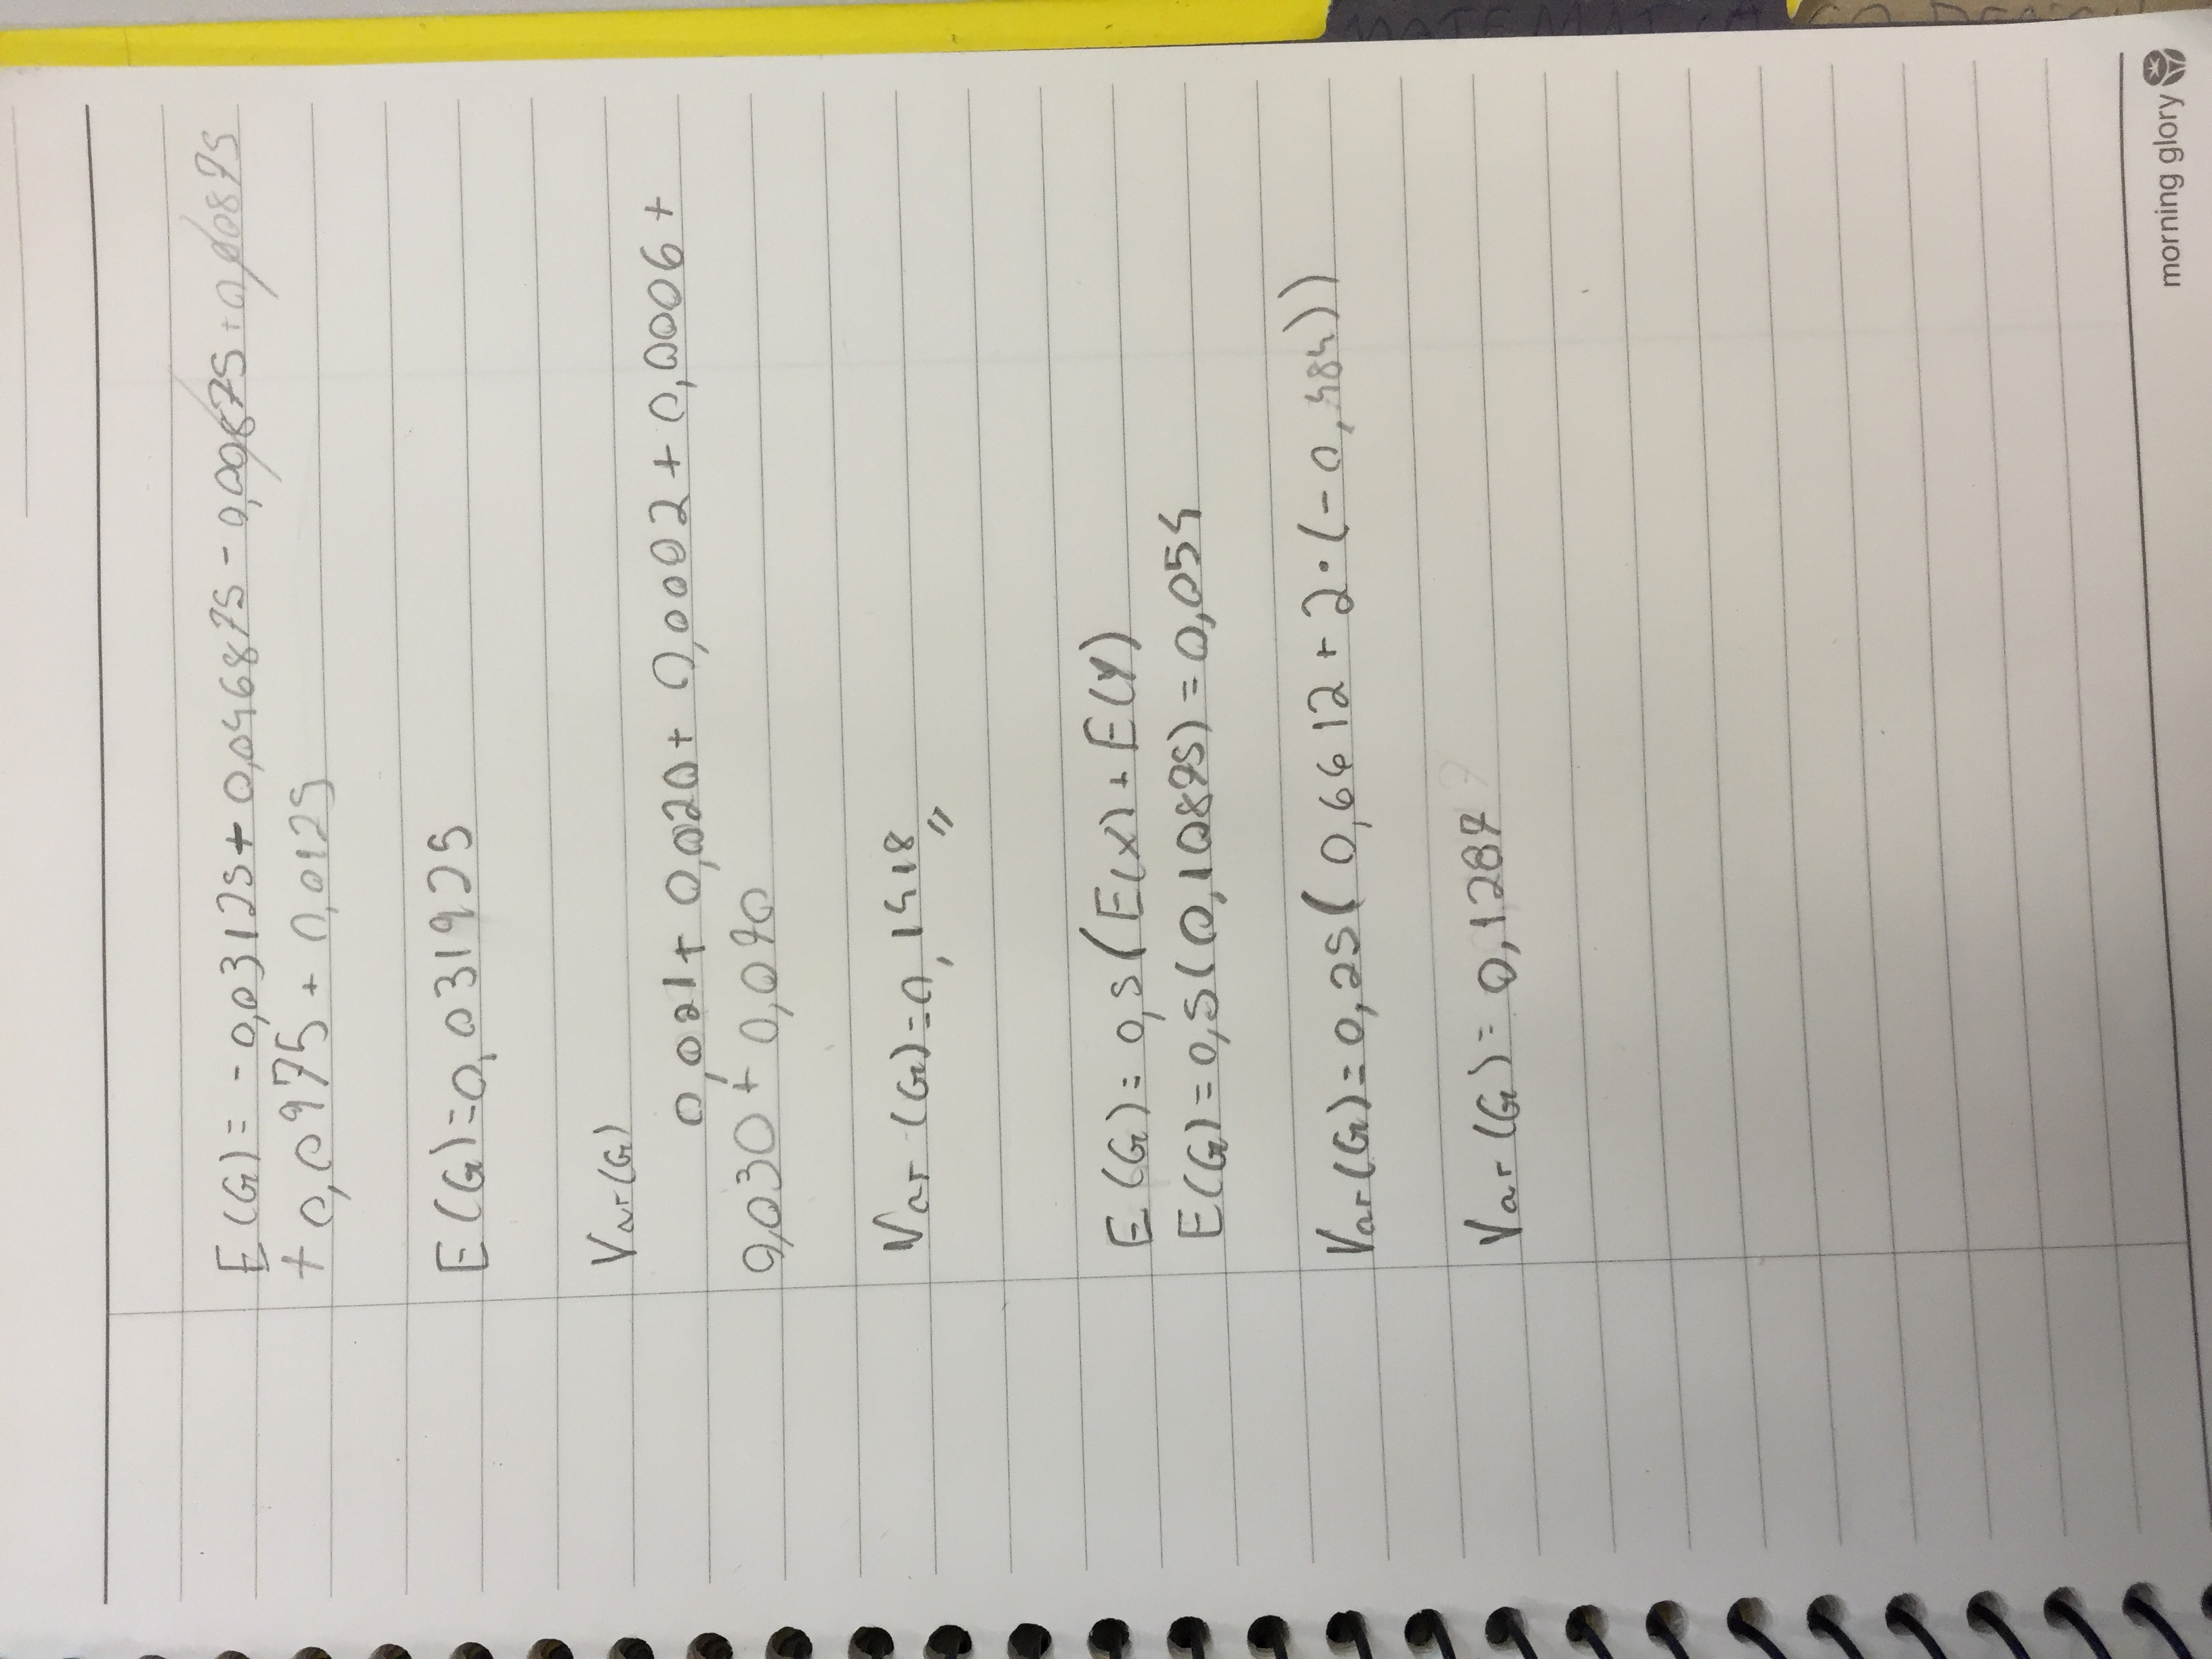 E(G) = - 0,03125 + 0,046875 - 0,00875 + 0,00875
+ 0,0975 + 0,0125
E(G) = 0,031925
Var(G)
0,021 + 0,020 + 0,0002 + 0,0006 +
0,030 + 0,070
Var (G) = 0,1418,,
E(G) = 0,5(E(X) + E(Y)
E(G) = 0,5(0,10875) = 0,054
Var(G) = 0,25( 0,6612 + 2·(-0,484))
Var(G) = 0,1287
morning glory